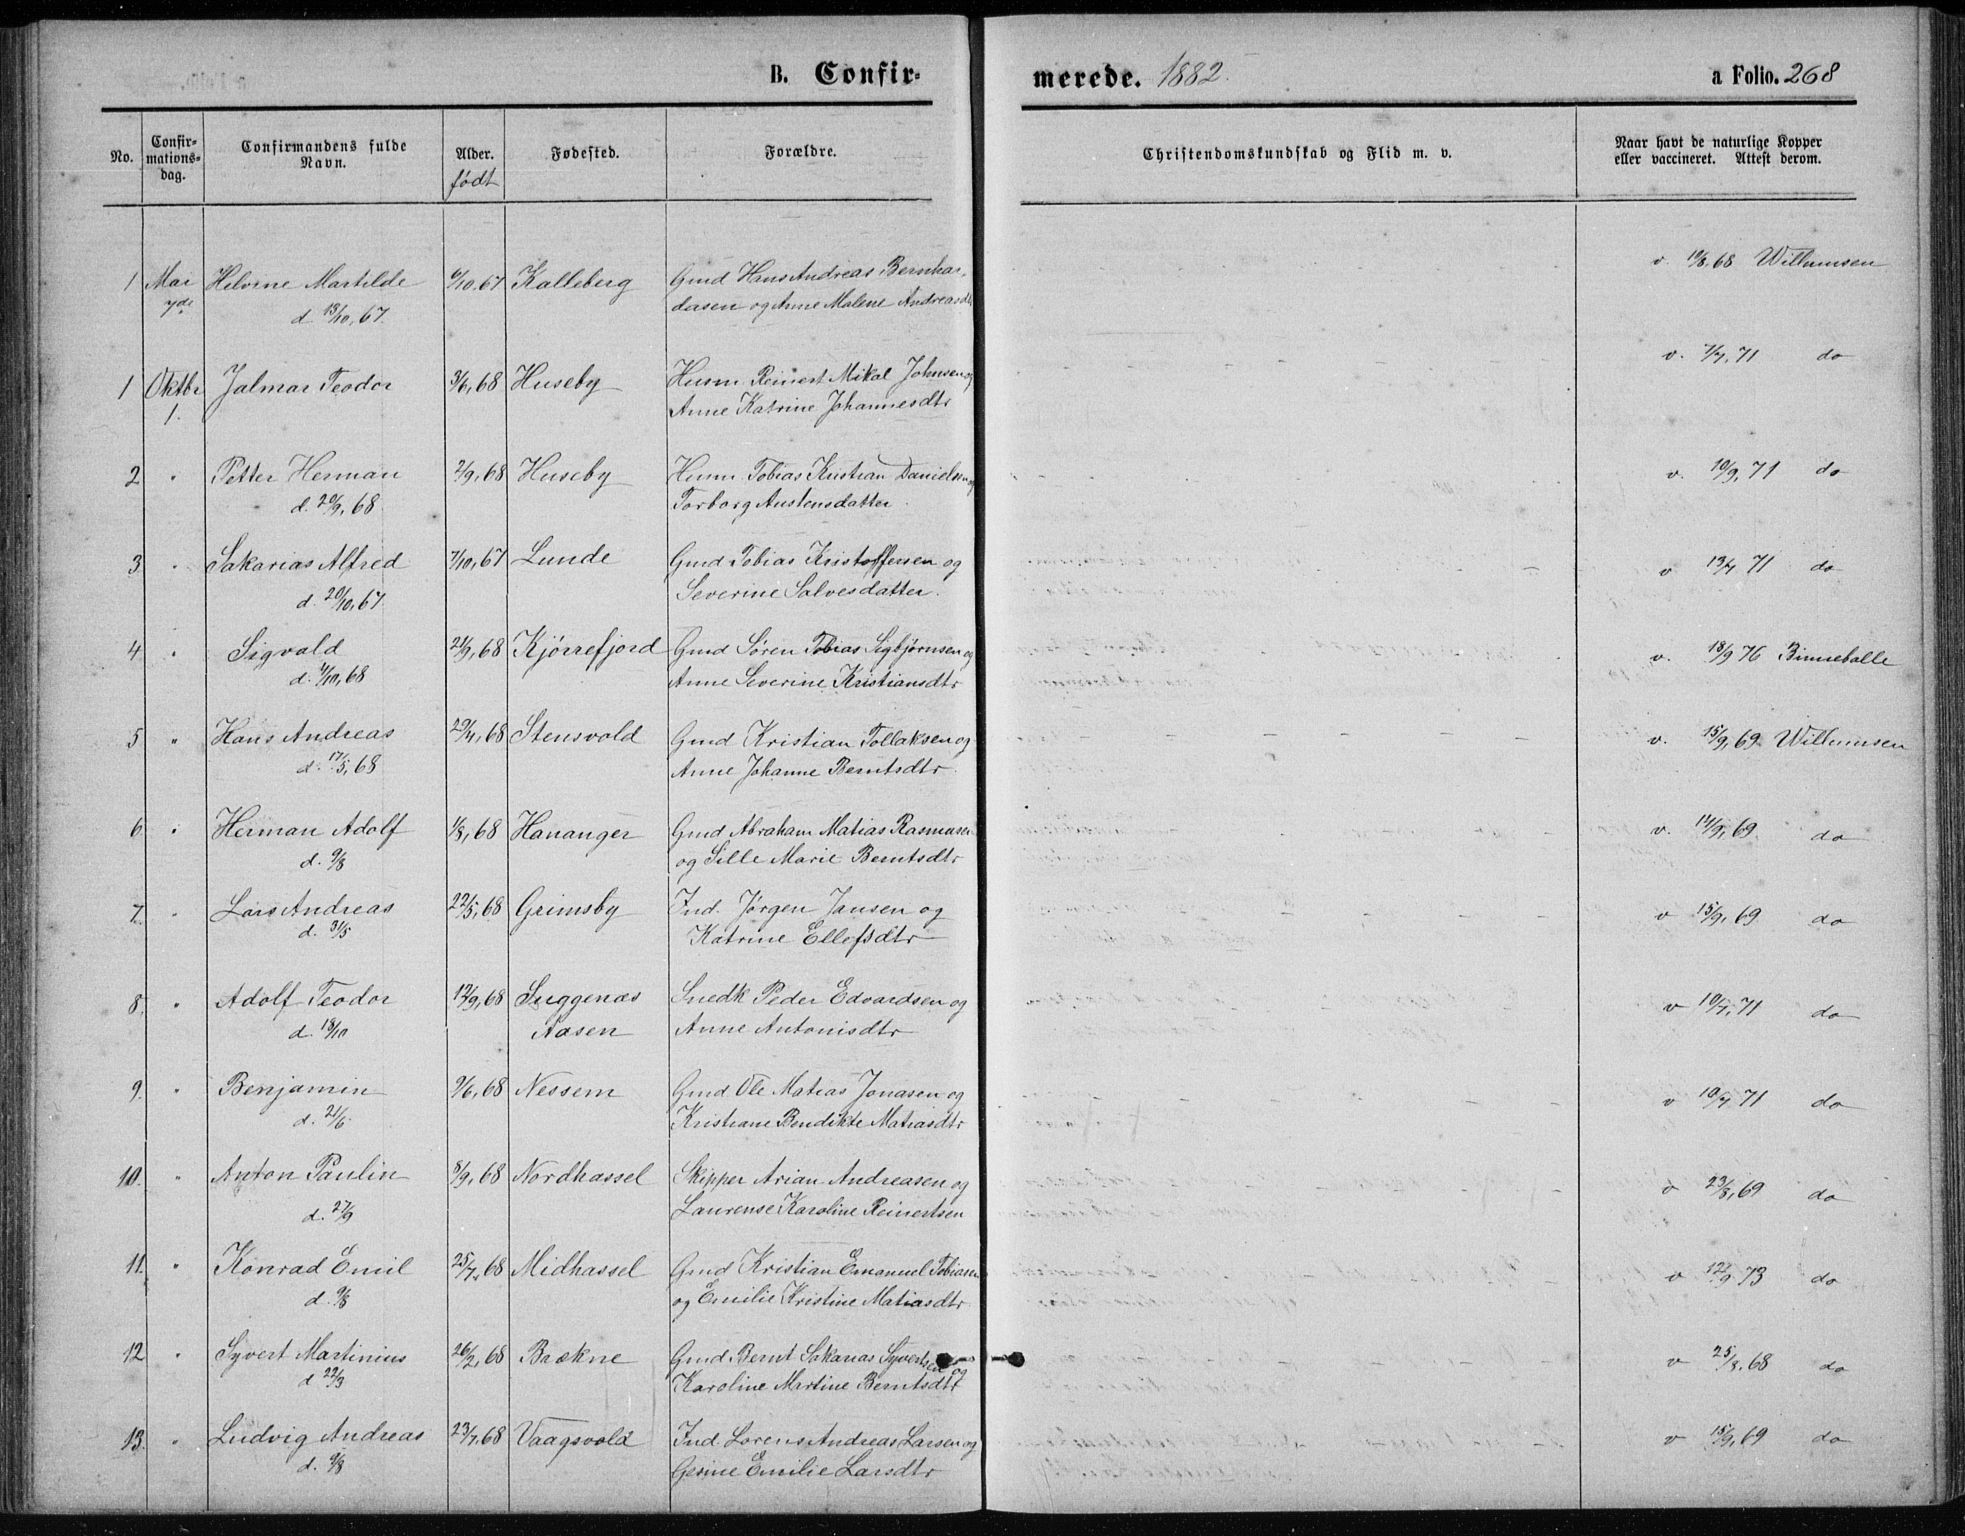 B. Confir-
merede. 1882.
a Folio. 268
No.
Confir-
mations-
dag.
Confirmandens fulde
Navn.
Alder.
født
Fødested.
Forældre.
Christendomskundskab og Flid m. v.
Naar havt de naturlige Kopper
eller vaccineret. Attest derom.
1 Mai Helvine Martilde 6/10,67 Kalleberg Gmd Hans Andreas Bernhar-
7de d. 13/10,67. dusen og Anne Malene Andreasdtr
v. 19/8,68 Willumsen
1 Oktbr Jalmar Teodor 3/6,68 Huseby Husm Reinert Mikal Johnsen og
1. Anne Katrine Johannesdtr
v. 7/7,71 do
2 " Petter Herman 2/9,68 Huseby Husm Tobias Kristian Danielsen og
d. 20/9,68. Torborg Austensdatter.
v. 10/9,71 do
3. " Sakarias Alfred 7/10,67 Lunde Gmd Tobias Kristoffersen og
d. 20/10,67. Severine Salvesdatter.
v 13/7 71 do
4. " Sigvald 21/9,68 Kjørrefjord Gmd Søren Tobias Sigbjørnsen og
d. 4/10,68 Anne Severine Kristiansdtr
v. 18/9 76 Binneballe
5 " Hans Andreas 29/4,68 Stensvold Gmd Kristian Tollaksen og
d. 17/5,68 Anne Johanne Berntsdtr.
v. 15/9,69 Willumsen
6. " Herman Adolf 1/8,68 Hananger Gmd Abraham Matias Rasmusen
d. 9/8 og Sille Marie Berntsdtr
v. 14/9,69 do
7. " Lars Andreas 22/5,68 Grimsby Ind. Jørgen Jansen og
d. 31/5 Katrine Ellefsdtr
v 15/9,69 do
8. " Adolf Teodor 12/9,68 Suggenæs Snedk Peder Edvardsen og
d. 18/10 Aasen Anne Antonisdtr
v 10/7,71 do
9. " Benjamin 9/6,68 Nessem Gmd Ole Matias Jonasen og
d. 21/6. Kristiane Bendikte Matiasdtr
v 10/7,71 do
10. " Anton Paulin 8/9,68 Nordhassel Skipper Arian Andreasen og
d. 27/9 Laurense Karoline Reinertsen
v 23/8,69 do
11. " Konrad Emil 25/7,68 Midhassel Gmd Kristian Emanuel Tobiasen
d. 9/8 og Emilie Kristine Matiasdtr
v 12/9 73 do
12 " Syvert Martinius 26/2,68 Brækne Gmd. Bernt Sakarias Syvertsen og
d 22/3 Karoline Martine Berntsdtr
v 25/8,68 do
13. " Ludvig Andreas 23/7,68 Vaagsvold Ind Lorens Andreas Larsen og
d. 9/8 Gesine Emilie Larsdtr
v 15/9,69 do